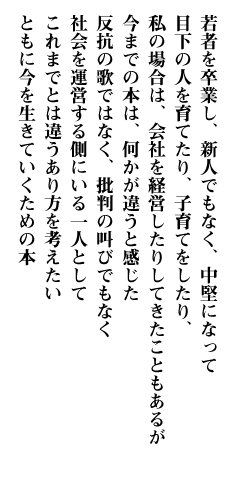 若者を卒業し、新人でもなく、中堅になって
目下の人を育てたり、子育てをしたり、
私の場合は、会社を経営したりしてきたこともあるが
今までの本は、何かが違うと感じた
反抗の歌ではなく、批判の叫びでもなく
社会を運営する側にいる一人として
これまでとは違うあり方を考えたい
ともに今を生きていくための本